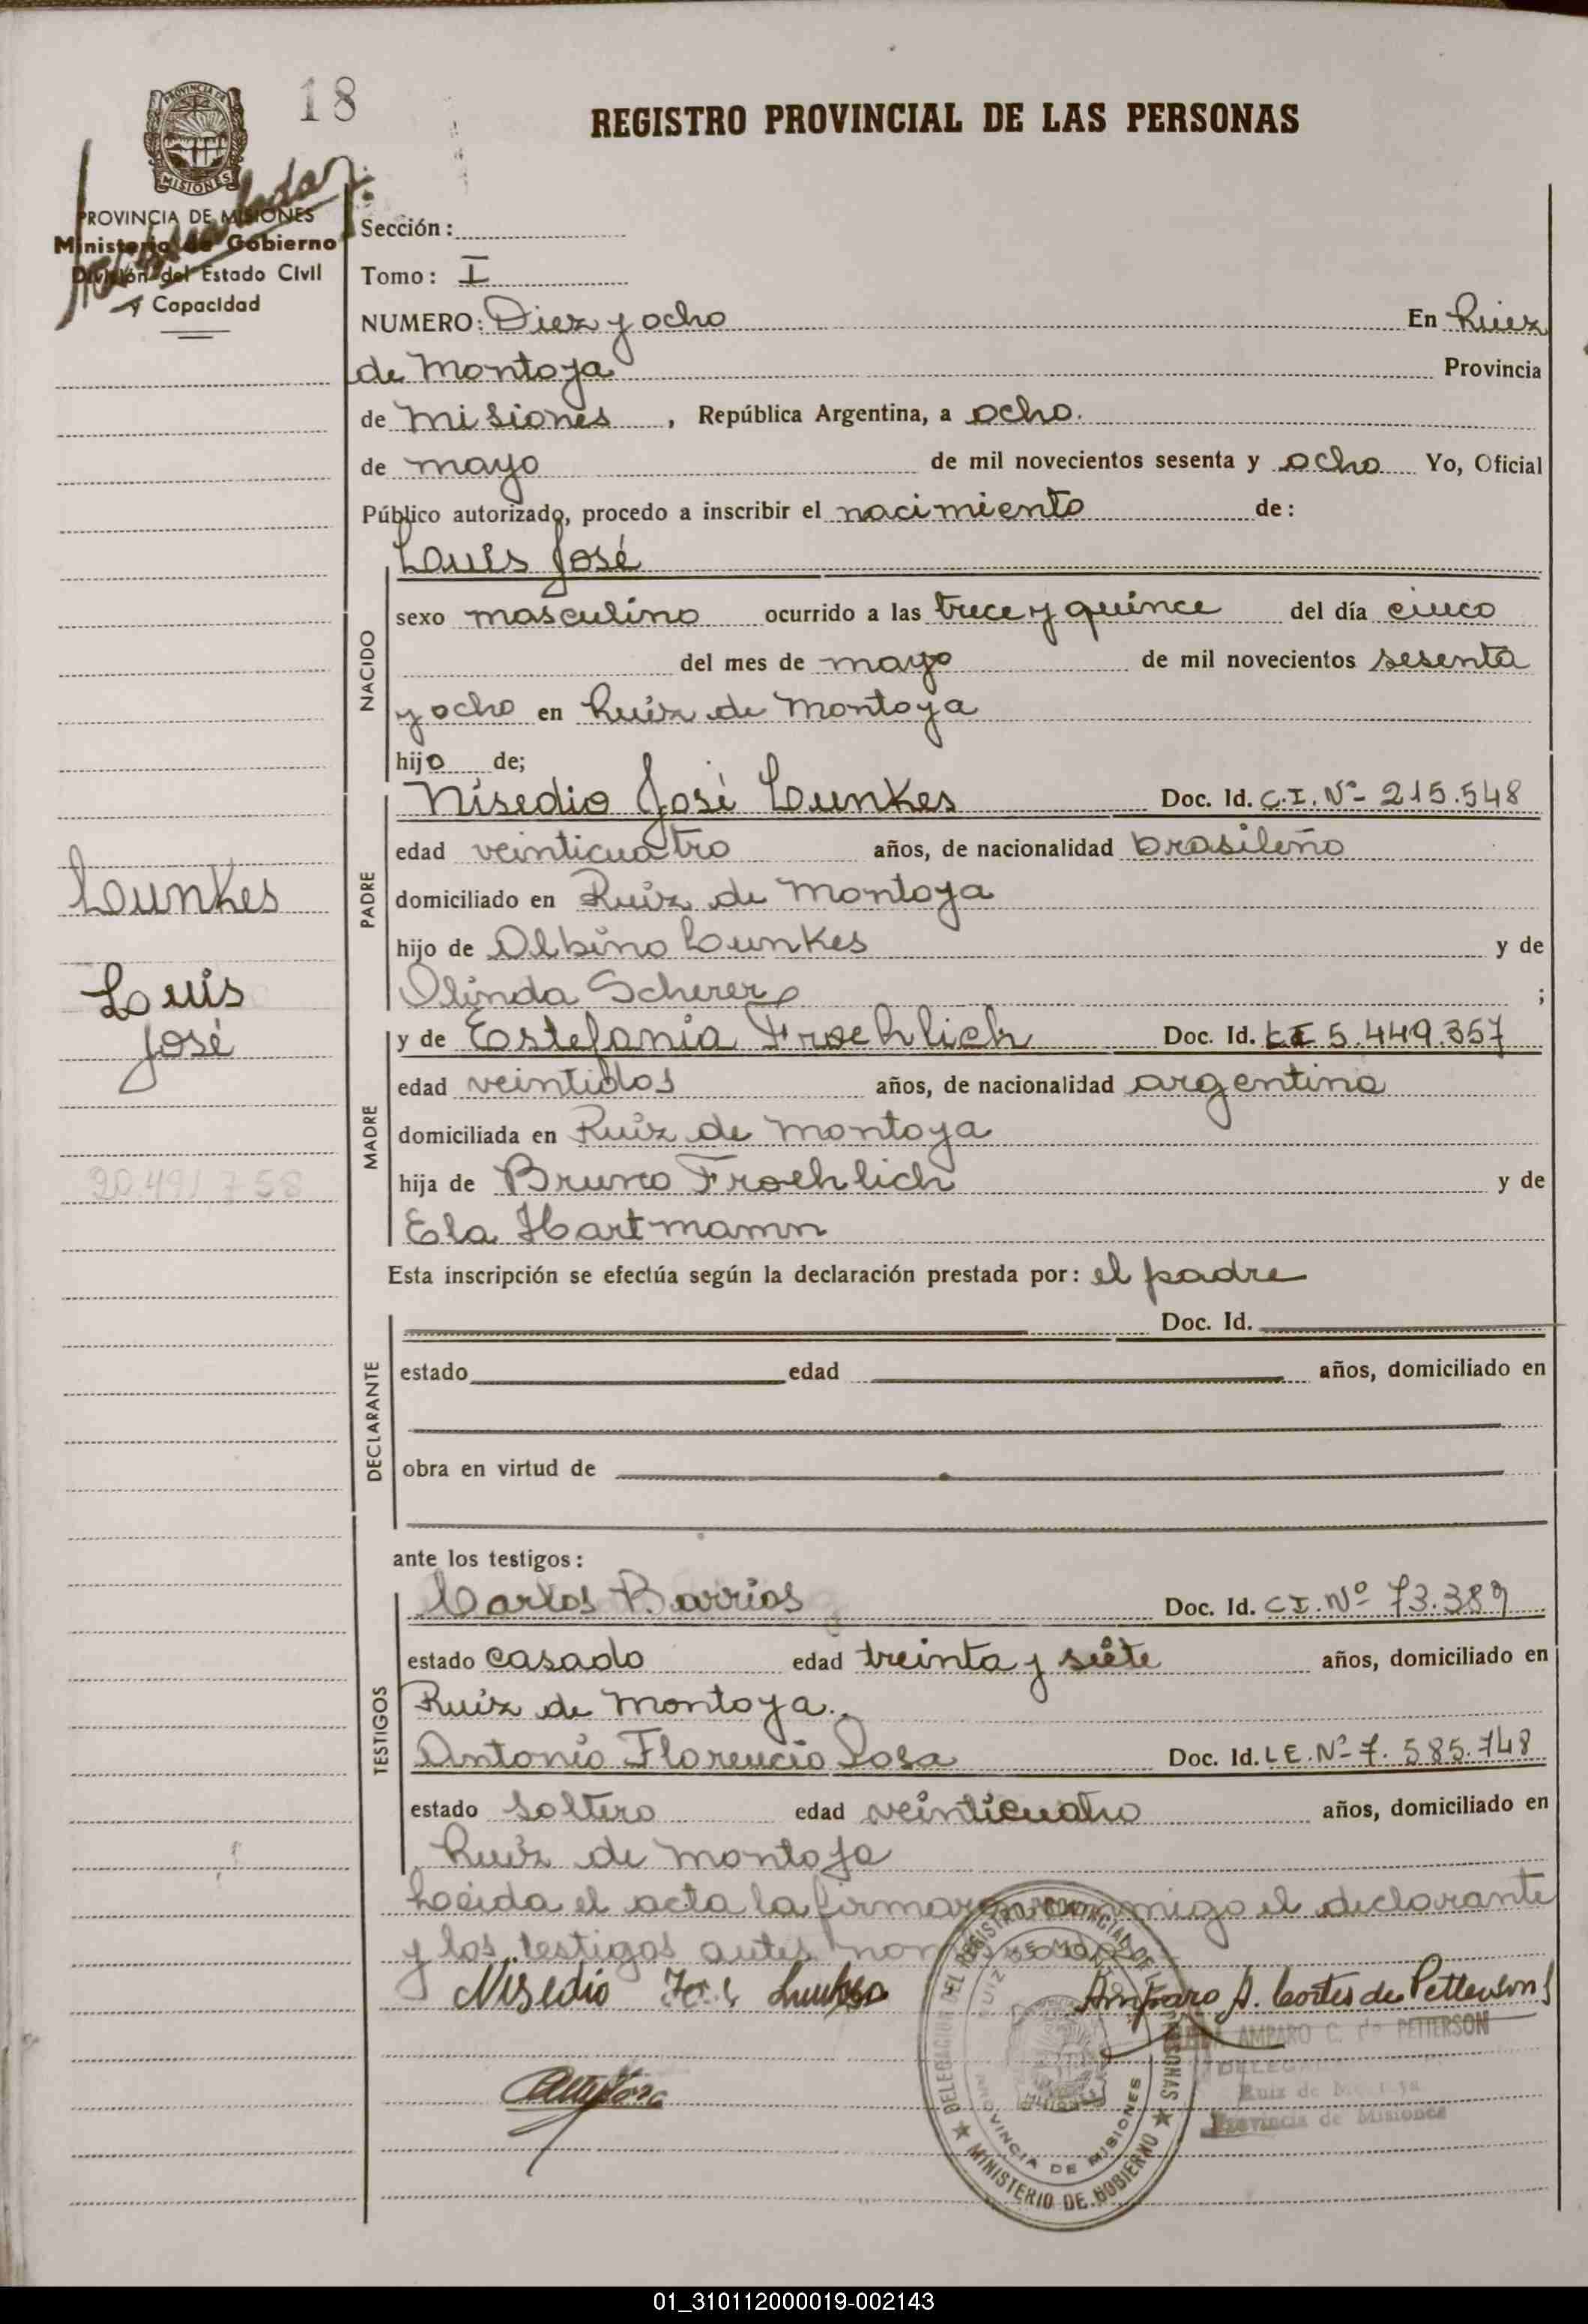 18
REGISTRO PROVINCIAL DE LAS PERSONAS
PROVINCIA DE MISIONES
PROVINCIA DE MISIONES
Ministerio de Gobierno
División del Estado Civil
y Capacidad
Sección:
Tomo: I
NUMERO: Diez y ocho En Ruiz
de Montoya Provincia
de Misiones, República Argentina, a ocho.
de mayo de mil novecientos sesenta y ocho Yo, Oficial
Público autorizado, procedo a inscribir el nacimiento de:
Luis José
NACIDO
sexo masculino ocurrido a las trece y quince del día cinco
del mes de mayo de mil novecientos sesenta
y ocho en Ruiz de Montoya
hijo de;
PADRE
Nisedio José Lunkes Doc. Id. C.I. Nº 215.548
edad veinticuatro años, de nacionalidad brasileño
domiciliado en Ruiz de Montoya
hijo de Albino Lunkes y de
Olinda Scherer ;
Lunkes
Luis
José
MADRE
y de Estefania Froehlich Doc. Id. CI 5.449.357
edad veintidos años, de nacionalidad argentina
domiciliada en Ruiz de Montoya
hija de Bruno Froehlich y de
Ela Hartmann
20.491758
Esta inscripción se efectúa según la declaración prestada por: el padre
DECLARANTE
Doc. Id.
estado edad años, domiciliado en
obra en virtud de
ante los testigos:
TESTIGOS
Carlos Barrios Doc. Id. C.I. Nº 73.389
estado casado edad treinta y siete años, domiciliado en
Ruiz de Montoya.
Antonio Florencio Sosa Doc. Id. L.E. Nº 7.585.748
estado soltero edad veinticuatro años, domiciliado en
Ruiz de Montoya
Leída el acta la firmaron conmigo el declarante
y los testigos antes nombrados
Nisedio José Lunkes Amparo A. Cortes de Petterson
AMPARO C. de PETTERSON
Ruiz de Montoya
Provincia de Misiones
DELEGACION DEL REGISTRO PROVINCIAL DE LAS PERSONAS
RUIZ DE MONTOYA
PROVINCIA DE MISIONES
MINISTERIO DE GOBIERNO
01_310112000019-002143